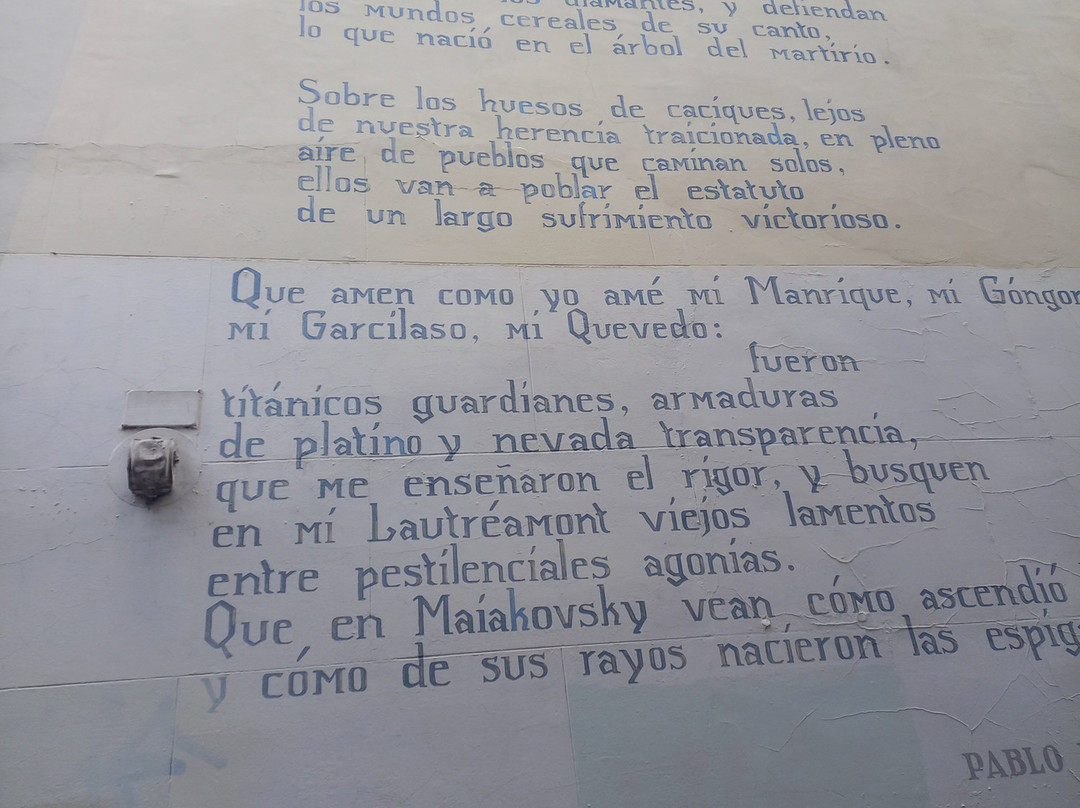 diamantes, y defiendan
los mundos cereales de su canto,
lo que nació en el árbol del martirio.
Sobre los huesos de caciques, lejos
de nuestra herencia traicionada, en pleno
aire de pueblos que caminan solos,
ellos van a poblar el estatuto
de un largo sufrimiento victorioso.
Que amen como yo amé mi Manrique, mi Góngor
mi Garcilaso, mi Quevedo:
fueron
titánicos guardianes, armaduras
de platino y nevada transparencia,
que me enseñaron el rigor, y busquen
en mi Lautréamont viejos lamentos
entre pestilenciales agonías.
Que en Maiakovsky vean cómo ascendió
y cómo de sus rayos nacieron las espig
PABLO